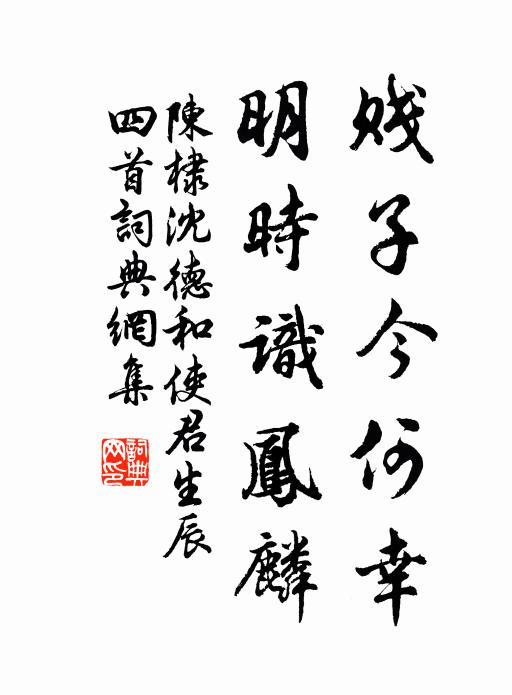 賤子今何幸
明時識鳳麟
陳棣沈德和使君生辰
四首詞典網集
詞典网印